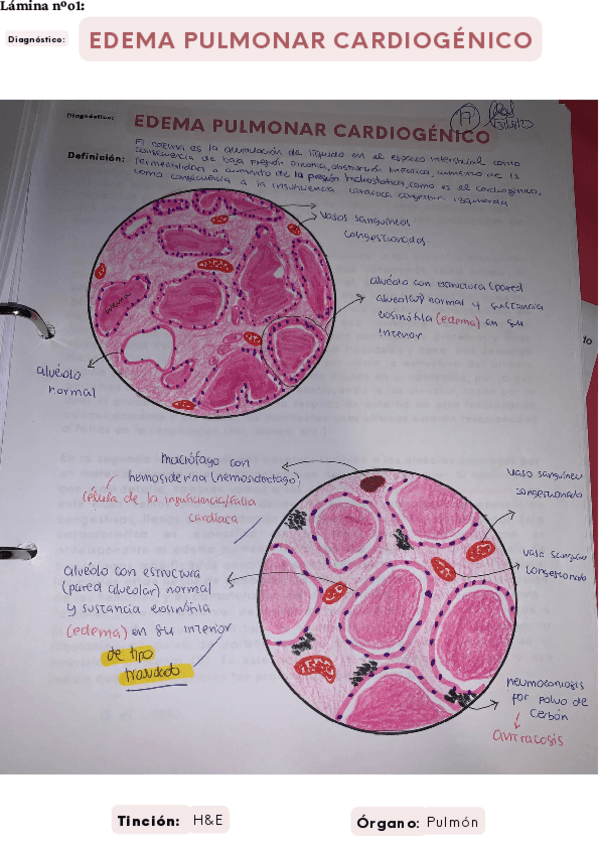 Lámina nº01:
Diagnóstico:
EDEMA PULMONAR CARDIOGÉNICO
Diagnóstico:
EDEMA PULMONAR CARDIOGÉNICO
Definición:
El edema es la acumulación de líquido en el espacio intersticial como
consecuencia de baja presión oncótica, obstrucción linfática, aumento de la
permeabilidad o aumento de la presión hidrostática, como es el cardiogénico,
como consecuencia a la insuficiencia cardíaca congestiva izquierda
vasos sanguíneos
congestionados.
alvéolo con estructura (pared
alveolar) normal y sustancia
eosinófila (edema) en su
interior
alvéolo
normal
macrófago con
hemosiderina (hemosiderófago)
célula de la insuficiencia/falla
cardíaca
vaso sanguíneo
congestionado
vaso sanguíneo
congestionado
alvéolo con estructura
(pared alveolar) normal
y sustancia eosinófila
(edema) en su interior
de tipo
trasudado
neumoconiosis
por polvo de
carbón
antracosis
Tinción: H&E
Órgano: Pulmón